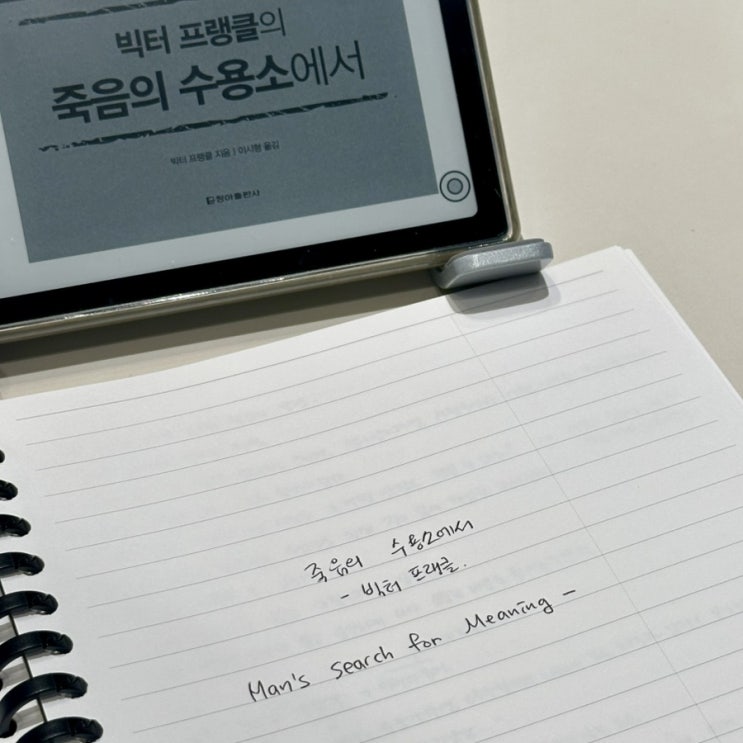 빅터 프랭클의
죽음의 수용소에서
빅터 프랭클 지음 | 이시형 옮김
청아출판사
죽음의 수용소에서
- 빅터 프랭클.
Man's search for Meaning -